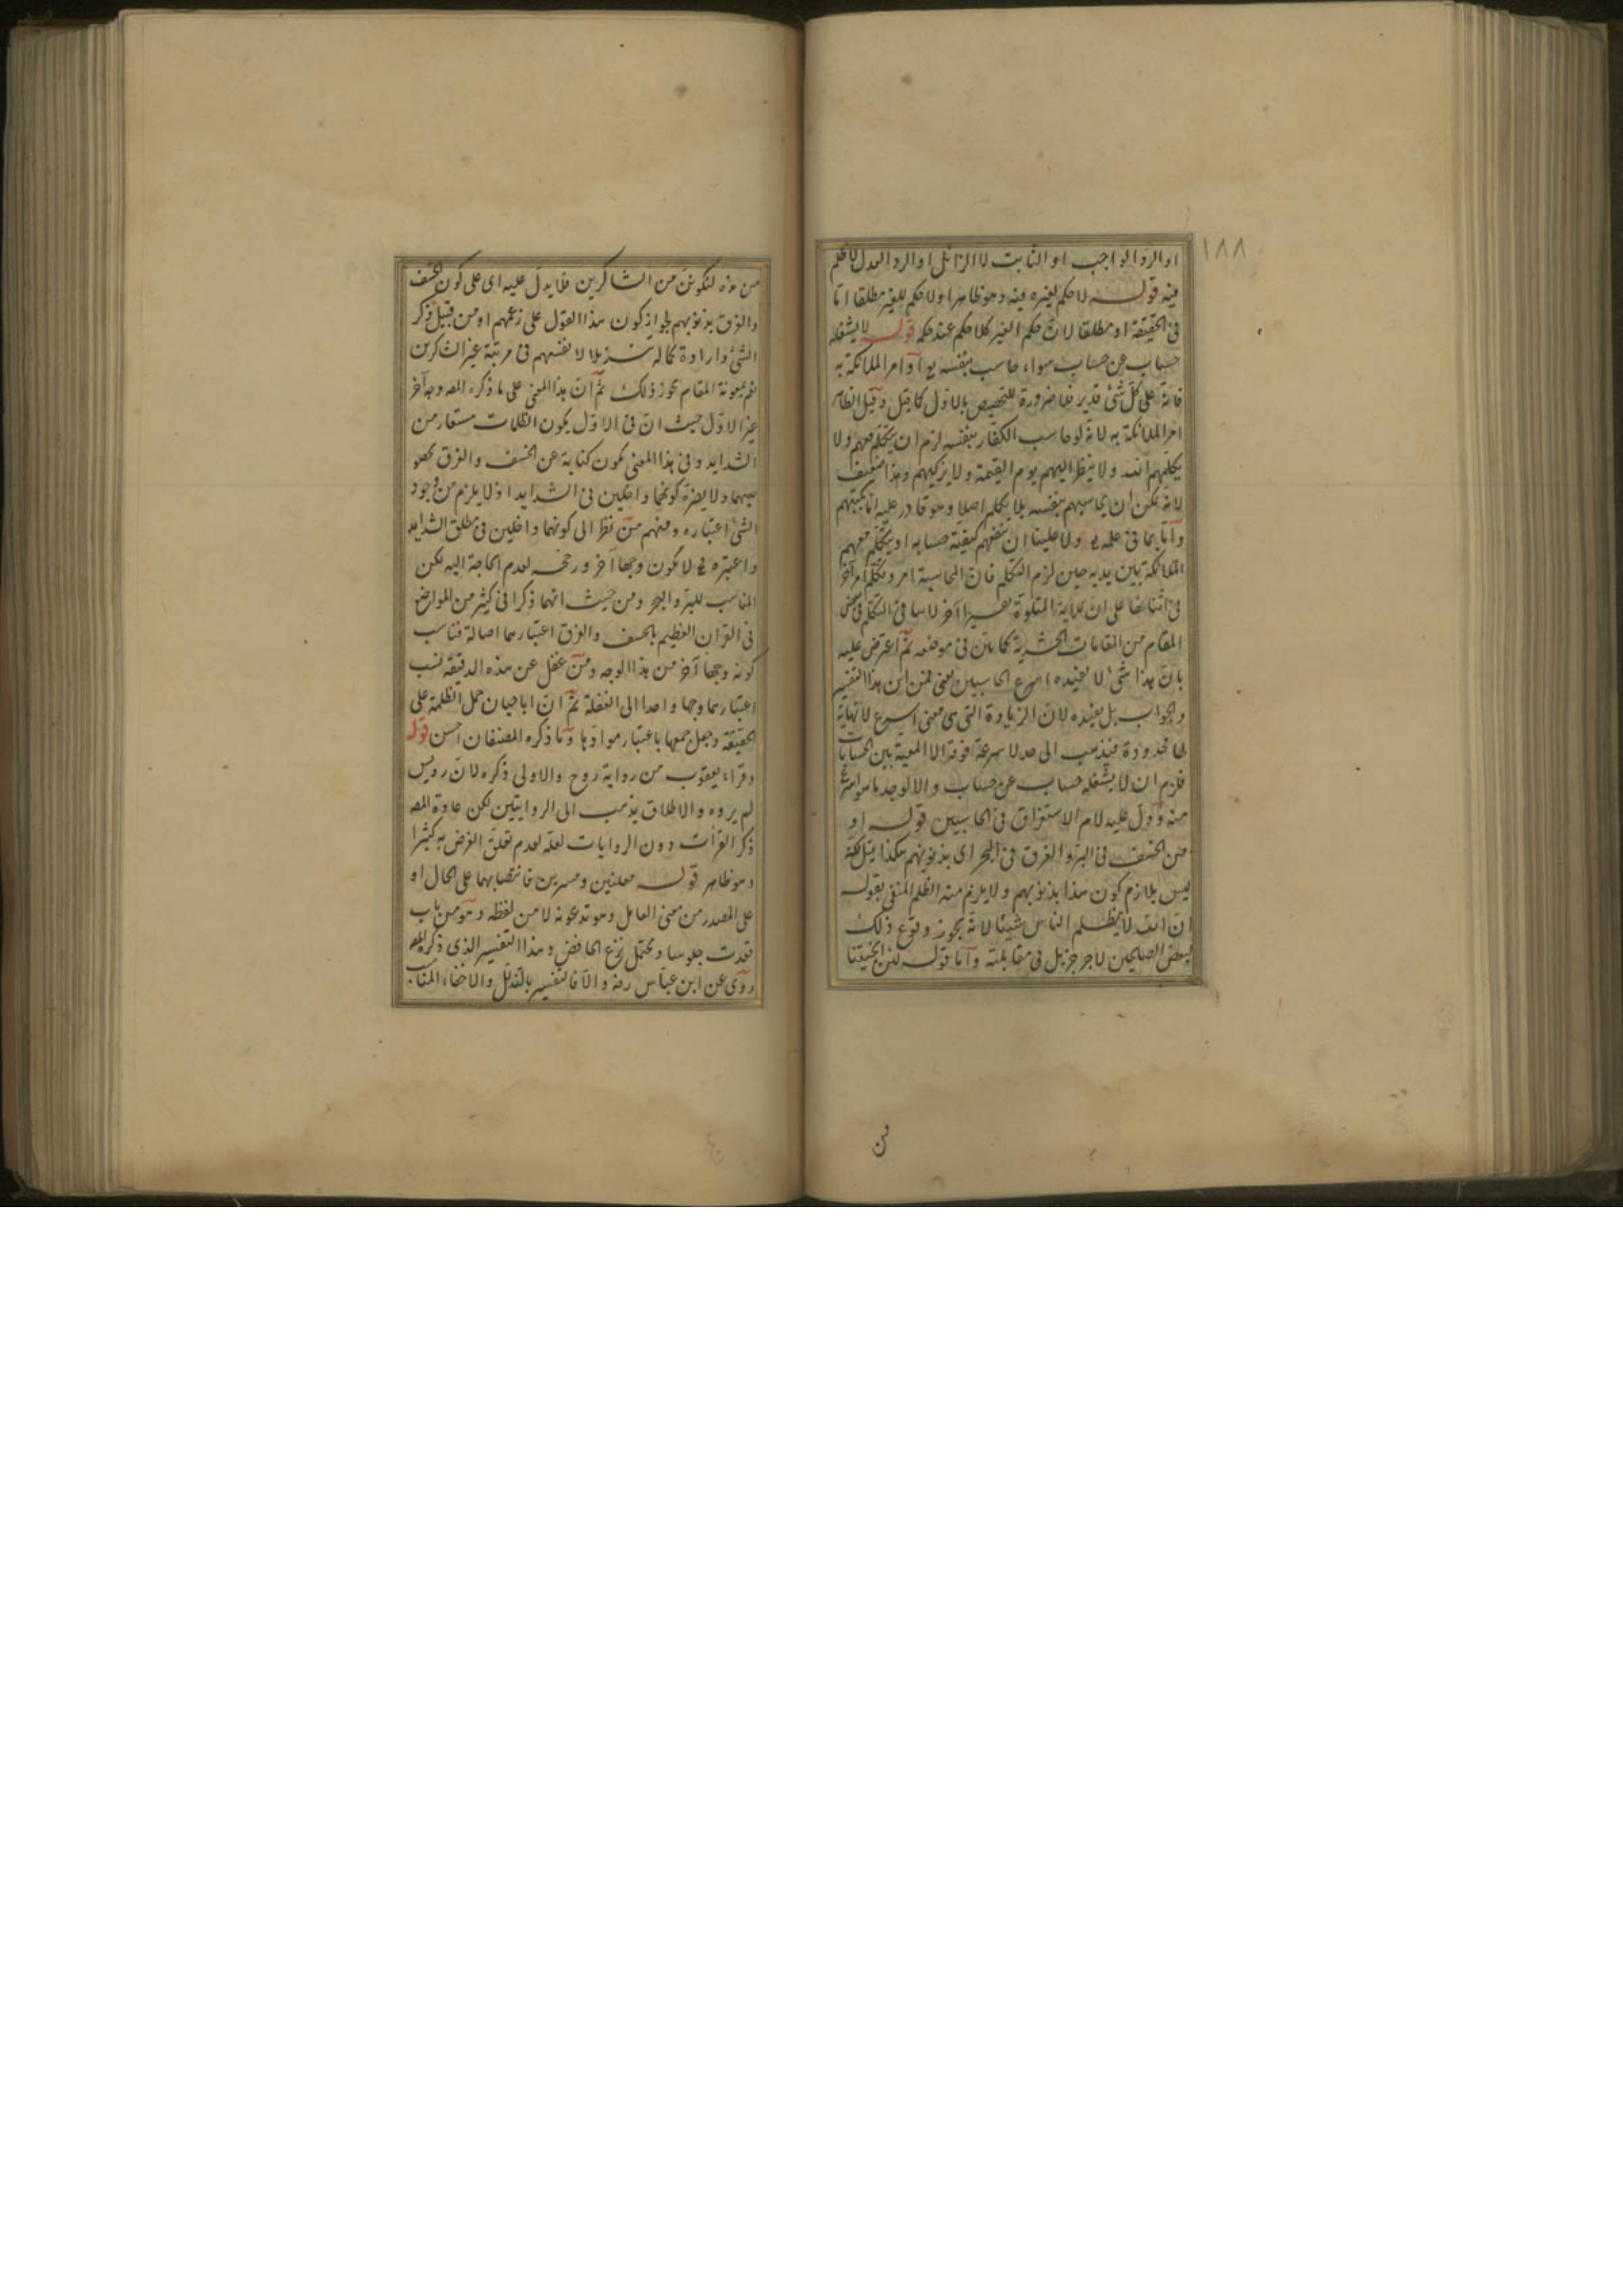 ١٨٨
او الرد الواجب او الثابت لا الزائل او الرد العدل لا ظلم
فيه قوله لا حكم لغيره فيه وهو ظاهرا ولا حكم للغير مطلقا اما
في الحقيقة او مطلقا لان حكم الغير كلا حكم عند حكمه قوله لا يشغله
حساب عن حساب سواء حاسب بنفسه او امر الملائكة به
فانه على كل شئ قدير فلا ضرورة للتخصيص بالاول كما قيل وقيل الظاهر
امر الملائكة به لانه لو حاسب الكفار بنفسه لزم ان يتكلم معهم ولا
يكلمهم الله ولا ينظر اليهم يوم القيمة ولا يزكيهم وهذا ضعيف
لانه يمكن ان يحاسبهم بنفسه بلا تكلم اصلا وهو قادر عليه اما بكتبهم
واما بما في علمه ولا علينا ان نفهم كيفية حسابه او يتكلم معهم
الملائكة بين يديه حين لزم التكلم فان المحاسبة امر وتكلم امر آخر
في اثنائها على ان للآية المتلوة تفسيرا آخر لا سيما في التكلم في بعض
المقام من المقامات الحشرية كما بين في موضعه ثم اعترض عليه
بان هذا شئ لا يفيده اسرع الحاسبين يعني فمن اين هذا التفسير
والجواب بل يفيده لان الزيادة التي هي معنى اسرع لا نهاية
لها محدودة فيذهب الى حد لا سرعة فوقه الا المعية بين الحسابات
فلزم ان لا يشغله حساب عن حساب والا لوجد ما هو اسرع
منه ودل عليه لام الاستغراق في الحاسبين قوله او
من الخسف في البر والغرق في البحر اى بذنوبهم هكذا قيل لكنه
ليس بلازم كون هذا بذنوبهم ولا يلزم منه الظلم المنفى بقوله
ان الله لا يظلم الناس شيئا لانه يجوز وقوع ذلك
لبعض الصالحين لاجر جزيل في مقابلته واما قوله لئن انجيتنا
من
من هذه لنكونن من الشاكرين فلا يدل عليه اى على كون الخسف
والغرق بذنوبهم لجواز كون هذا القول على زعمهم او من قبيل ذكر
الشئ وارادة كماله تنزيلا لانفسهم في مرتبة غير الشاكرين
نعم بمعونة المقام يجوز ذلك ثم ان هذا المعنى على ما ذكره المص وجه آخر
غير الاول حيث ان في الاول يكون الظلمات مستعار من
الشدايد وفي هذا المعنى يكون كناية عن الخسف والغرق
ولا يضره كونهما داخلين في الشدايد اذ لا يلزم من وجود
الشئ اعتباره ومنهم من نظر الى كونهما داخلين في مطلق الشدايد
واعتبره لا يكون وجها آخر ورجحه لعدم الحاجة اليه لكن
المناسب للبر والبحر ومن حيث انهما ذكرا في كثير من المواضع
في القرآن العظيم بالخسف والغرق اعتبارهما اصالة فناسب
كونه وجها آخر من هذا الوجه ومن غفل عن هذه الدقيقة نسب
اعتبارهما وجها واحدا الى الغفلة ثم ان ابا حيان حمل الظلمة على
الحقيقة وجعل جمعها باعتبار موادها وما ذكره المصنفان احسن قوله
وقراء يعقوب من رواية روح والاولى ذكره لان رويس
لم يروه والاطلاق يذهب الى الروايتين لكن عادة المص
ذكر القرأت دون الروايات لعله لعدم تعلق الغرض به كثيرا
وهو ظاهر قوله معلنين ومسرين فانتصابهما على الحال او
على المصدر من معنى العامل وهو تدعونه لا من لفظه وهو من باب
قعدت جلوسا ويحتمل نزع الخافض وهذا التفسير الذى ذكره المص
روى عن ابن عباس رضه والا فالتفسير بالتذلل والاخفاء المناسب